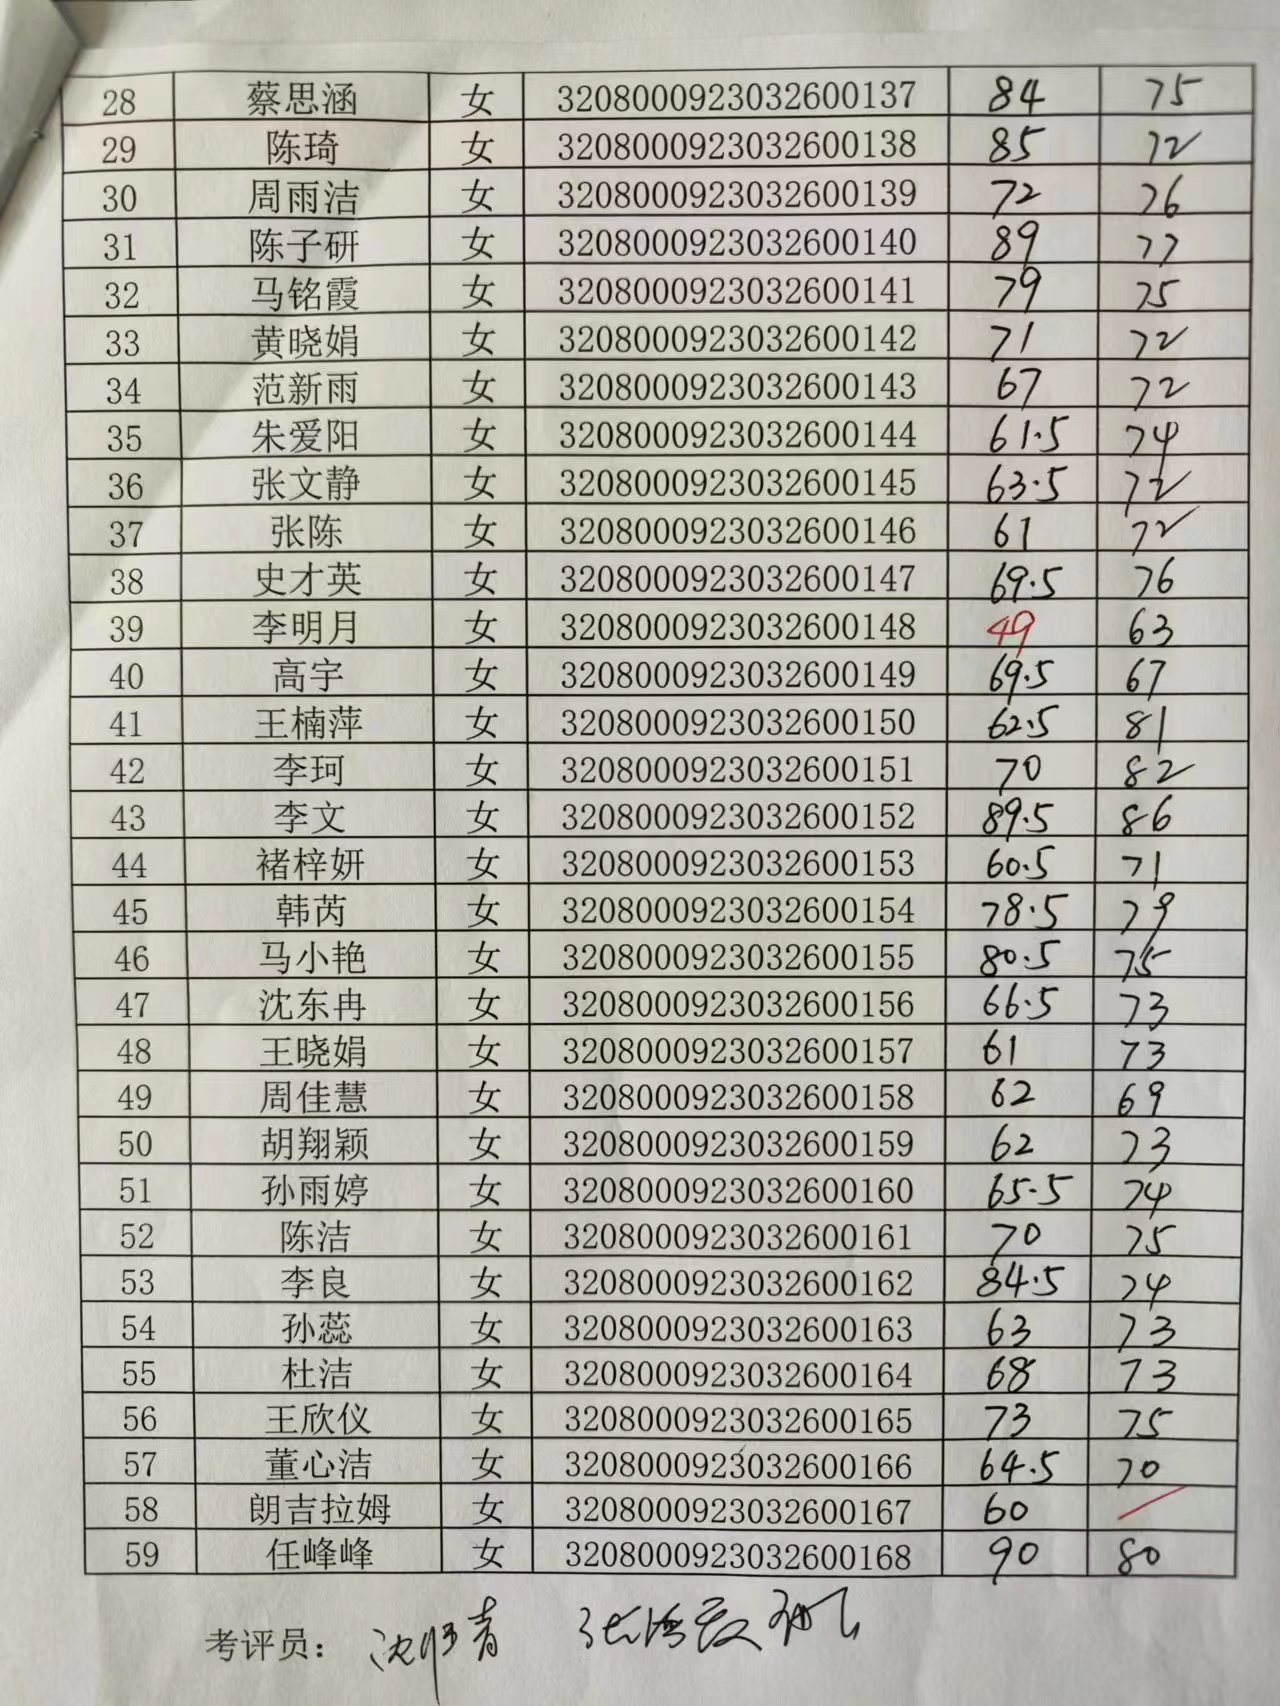 28 蔡思涵 女 3208000923032600137 84 75
29 陈琦 女 3208000923032600138 85 72
30 周雨洁 女 3208000923032600139 72 76
31 陈子研 女 3208000923032600140 89 77
32 马铭霞 女 3208000923032600141 79 75
33 黄晓娟 女 3208000923032600142 71 72
34 范新雨 女 3208000923032600143 67 72
35 朱爱阳 女 3208000923032600144 61.5 74
36 张文静 女 3208000923032600145 63.5 72
37 张陈 女 3208000923032600146 61 72
38 史才英 女 3208000923032600147 69.5 76
39 李明月 女 3208000923032600148 49 63
40 高宇 女 3208000923032600149 69.5 67
41 王楠萍 女 3208000923032600150 62.5 81
42 李珂 女 3208000923032600151 70 82
43 李文 女 3208000923032600152 89.5 86
44 褚梓妍 女 3208000923032600153 60.5 71
45 韩芮 女 3208000923032600154 78.5 79
46 马小艳 女 3208000923032600155 80.5 75
47 沈东冉 女 3208000923032600156 66.5 73
48 王晓娟 女 3208000923032600157 61 73
49 周佳慧 女 3208000923032600158 62 69
50 胡翔颖 女 3208000923032600159 62 73
51 孙雨婷 女 3208000923032600160 65.5 74
52 陈洁 女 3208000923032600161 70 75
53 李良 女 3208000923032600162 84.5 74
54 孙蕊 女 3208000923032600163 63 73
55 杜洁 女 3208000923032600164 68 73
56 王欣仪 女 3208000923032600165 73 75
57 董心洁 女 3208000923032600166 64.5 70
58 朗吉拉姆 女 3208000923032600167 60
59 任峰峰 女 3208000923032600168 90 80
考评员：